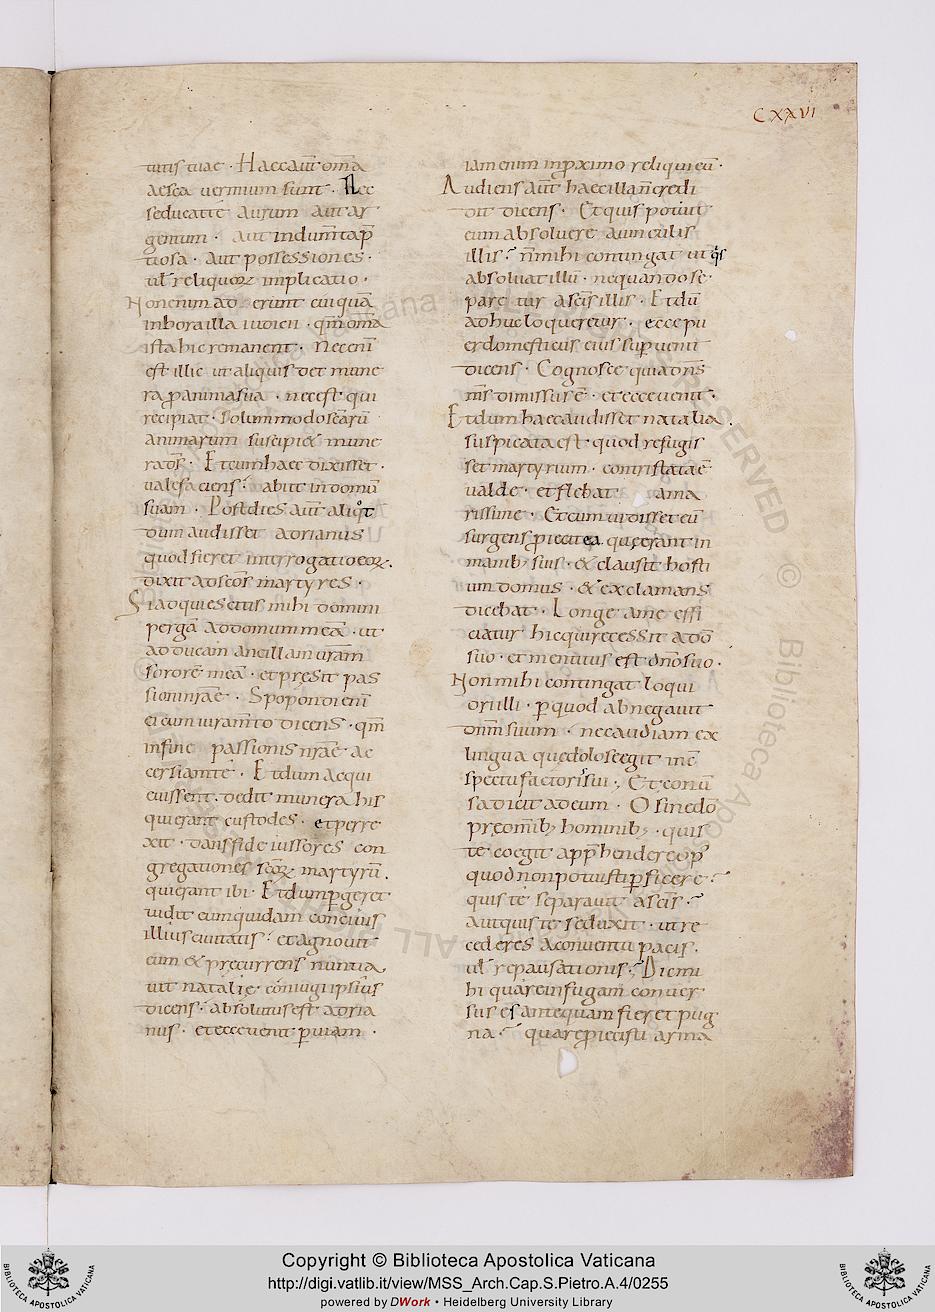 CXXVI
tutis tuae · Haec aut̄ om̄a
aesca uermium sunt · Nec
seducat te aurum aut ar
gentum · aut indum̄ta p̄
tiosa · aut possessiones ·
ul̄ reliquoꝝ implicatio ·
Non enim ad erunt cuiquā
in hora illa iudicii · qm̄ om̄a
ista hic remanent · Nec enī
est illic ut aliquis det mune
ra ꝓ anima sua · nec est qui
recipiat · Solummodo sc̄arū
animarum suscipi& mune
rat̄ · Et cum haec dixisset ·
ualefaciens · abiit in domū
suam · Post dies aut̄ aliq̊t
dum audisset adrianus
quod fieret interrogatio eoꝝ ·
dixit ad sc̄os martyres ·
Si adquiescitis mihi domini
pergā ad domum meā · ut
adducam ancillam ur̄am
sororē meā · et pręsit pas
sioni nr̄ae · Spoponderat enī
ei cum iuram̄to dicens · qm̄
in fine passionis nr̄ae ac
cersiam te · Et dum acqui
euissent · dedit munera his
qui erant custodes · et perre
xit · dans fideiussores con
gregationes sc̄oꝝ martyrū ·
qui erant ibi · Et dum ꝑgeret
uidit eum quidam conciuis
illius ciuitatis · et agnouit
eum & precurrens nuntia
uit natalię · coniugi ipsius
dicens · absolutus est adria
nus · et ecce uenit ꝑ uiam ·
iam enim in ꝓximo reliqui eū ·
Audiens aut̄ haec illa n̄ credi
dit dicens · Et quis potuit
eum absoluere a uinculis
illis · n̄ mihi contingat ut q̊s
absoluat illū · ne quando se
paretur a sc̄is illis · Et dū
adhuc loqueretur · ecce pu
er domesticus eius suꝑuenit
dicens · Cognosce quia dn̄s
m̄s dimissus ē · et ecce uenit ·
Et dum haec audisset natalia ·
suspicata est · quod refugis
set martyrium · contristata ē
ualde · et flebat ama
rissime · Et cum uidisset eū
surgens ꝓiecit ea quę erant in
manib; suis · & clausit hosti
um domus · & exclamans
dicebat · Longe a me effi
ciatur hic qui recessit a dō
suo · et mentitus est dn̄o suo ·
Non mihi contingat loqui
ori illi · ꝑ quod abnegauit
dn̄m suum · nec audiam ex
lingua quę dolose egit in c̄
spectu factoris sui · Et conu̅
sa dicit ad eum · O sine dō
prę om̄ib; hominib; · quis
te coegit app̄hendere op̄
quod non potuisti ꝑficere ·
quis te separauit a sc̄is ·
aut quis te seduxit · ut re
cederes a conuentu pacis ·
ul̄ repausationis · Dic mi
hi quare in fugam conuer
sus es antequam fieret pug
na · quare ꝓiecisti arma
Copyright © Biblioteca Apostolica Vaticana
http://digi.vatlib.it/view/MSS_Arch.Cap.S.Pietro.A.4/0255
powered by DWork • Heidelberg University Library